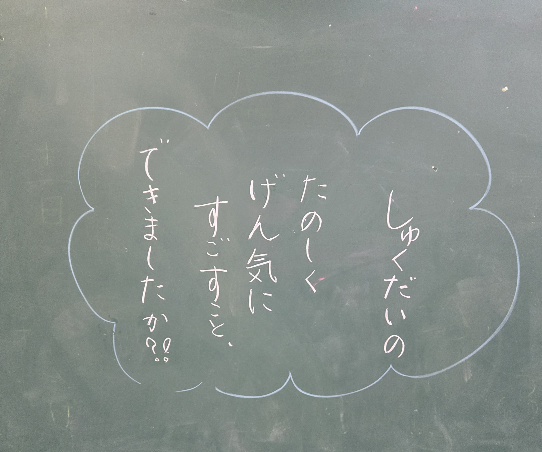 しゅくだいの
たのしく
げん気に
すごすこと、
できましたか?!